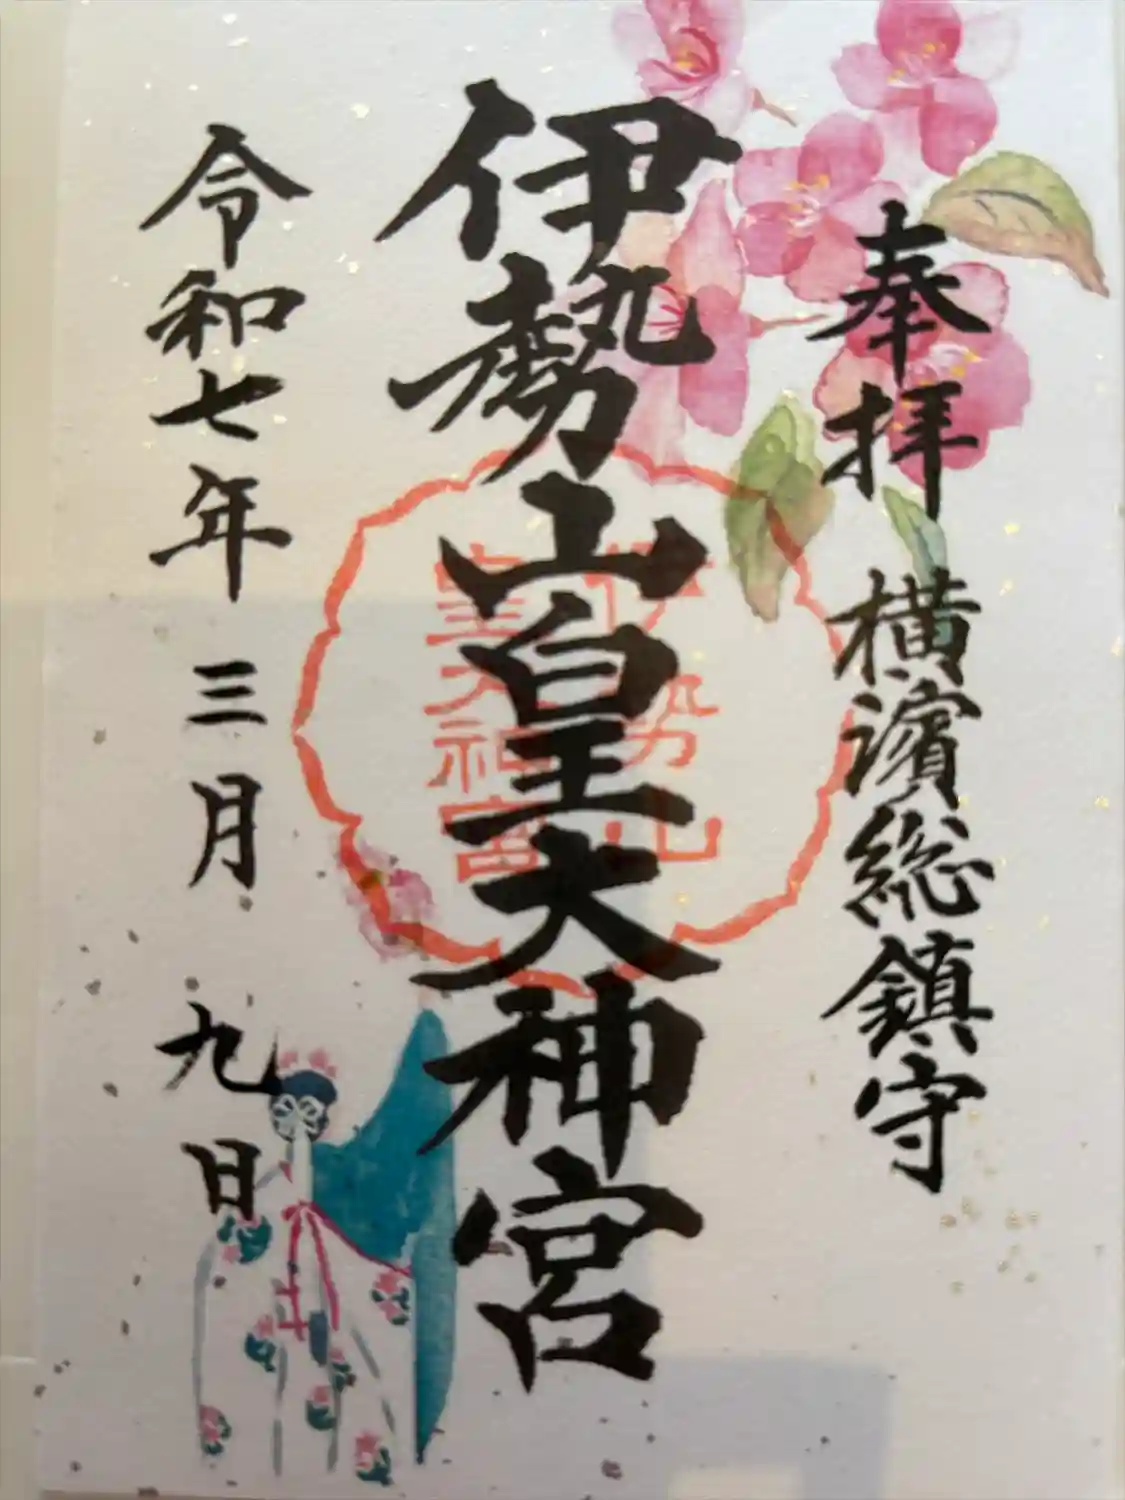 奉拝 横濱総鎮守
伊勢山皇大神宮
伊勢山
皇大神宮
令和七年 三月 九日